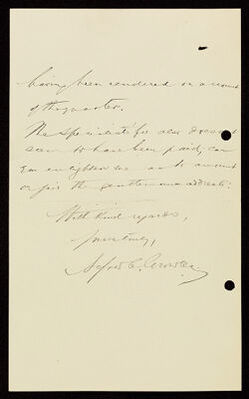 having been rendered on account
of the quarter.
The specialist's for our
seem to have been paid; can
you enlighten me as to amount
or give the gentleman's address?
With kind regards,
Yours truly,
Alfred C.